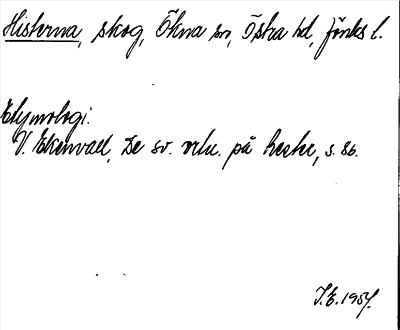 Histerna, skog, Ökna sn, Östra hd, Jönks l.
Etymologi.
V. Ekenvall, De sv. ortn. på hester, s. 86.
I.E. 1957.